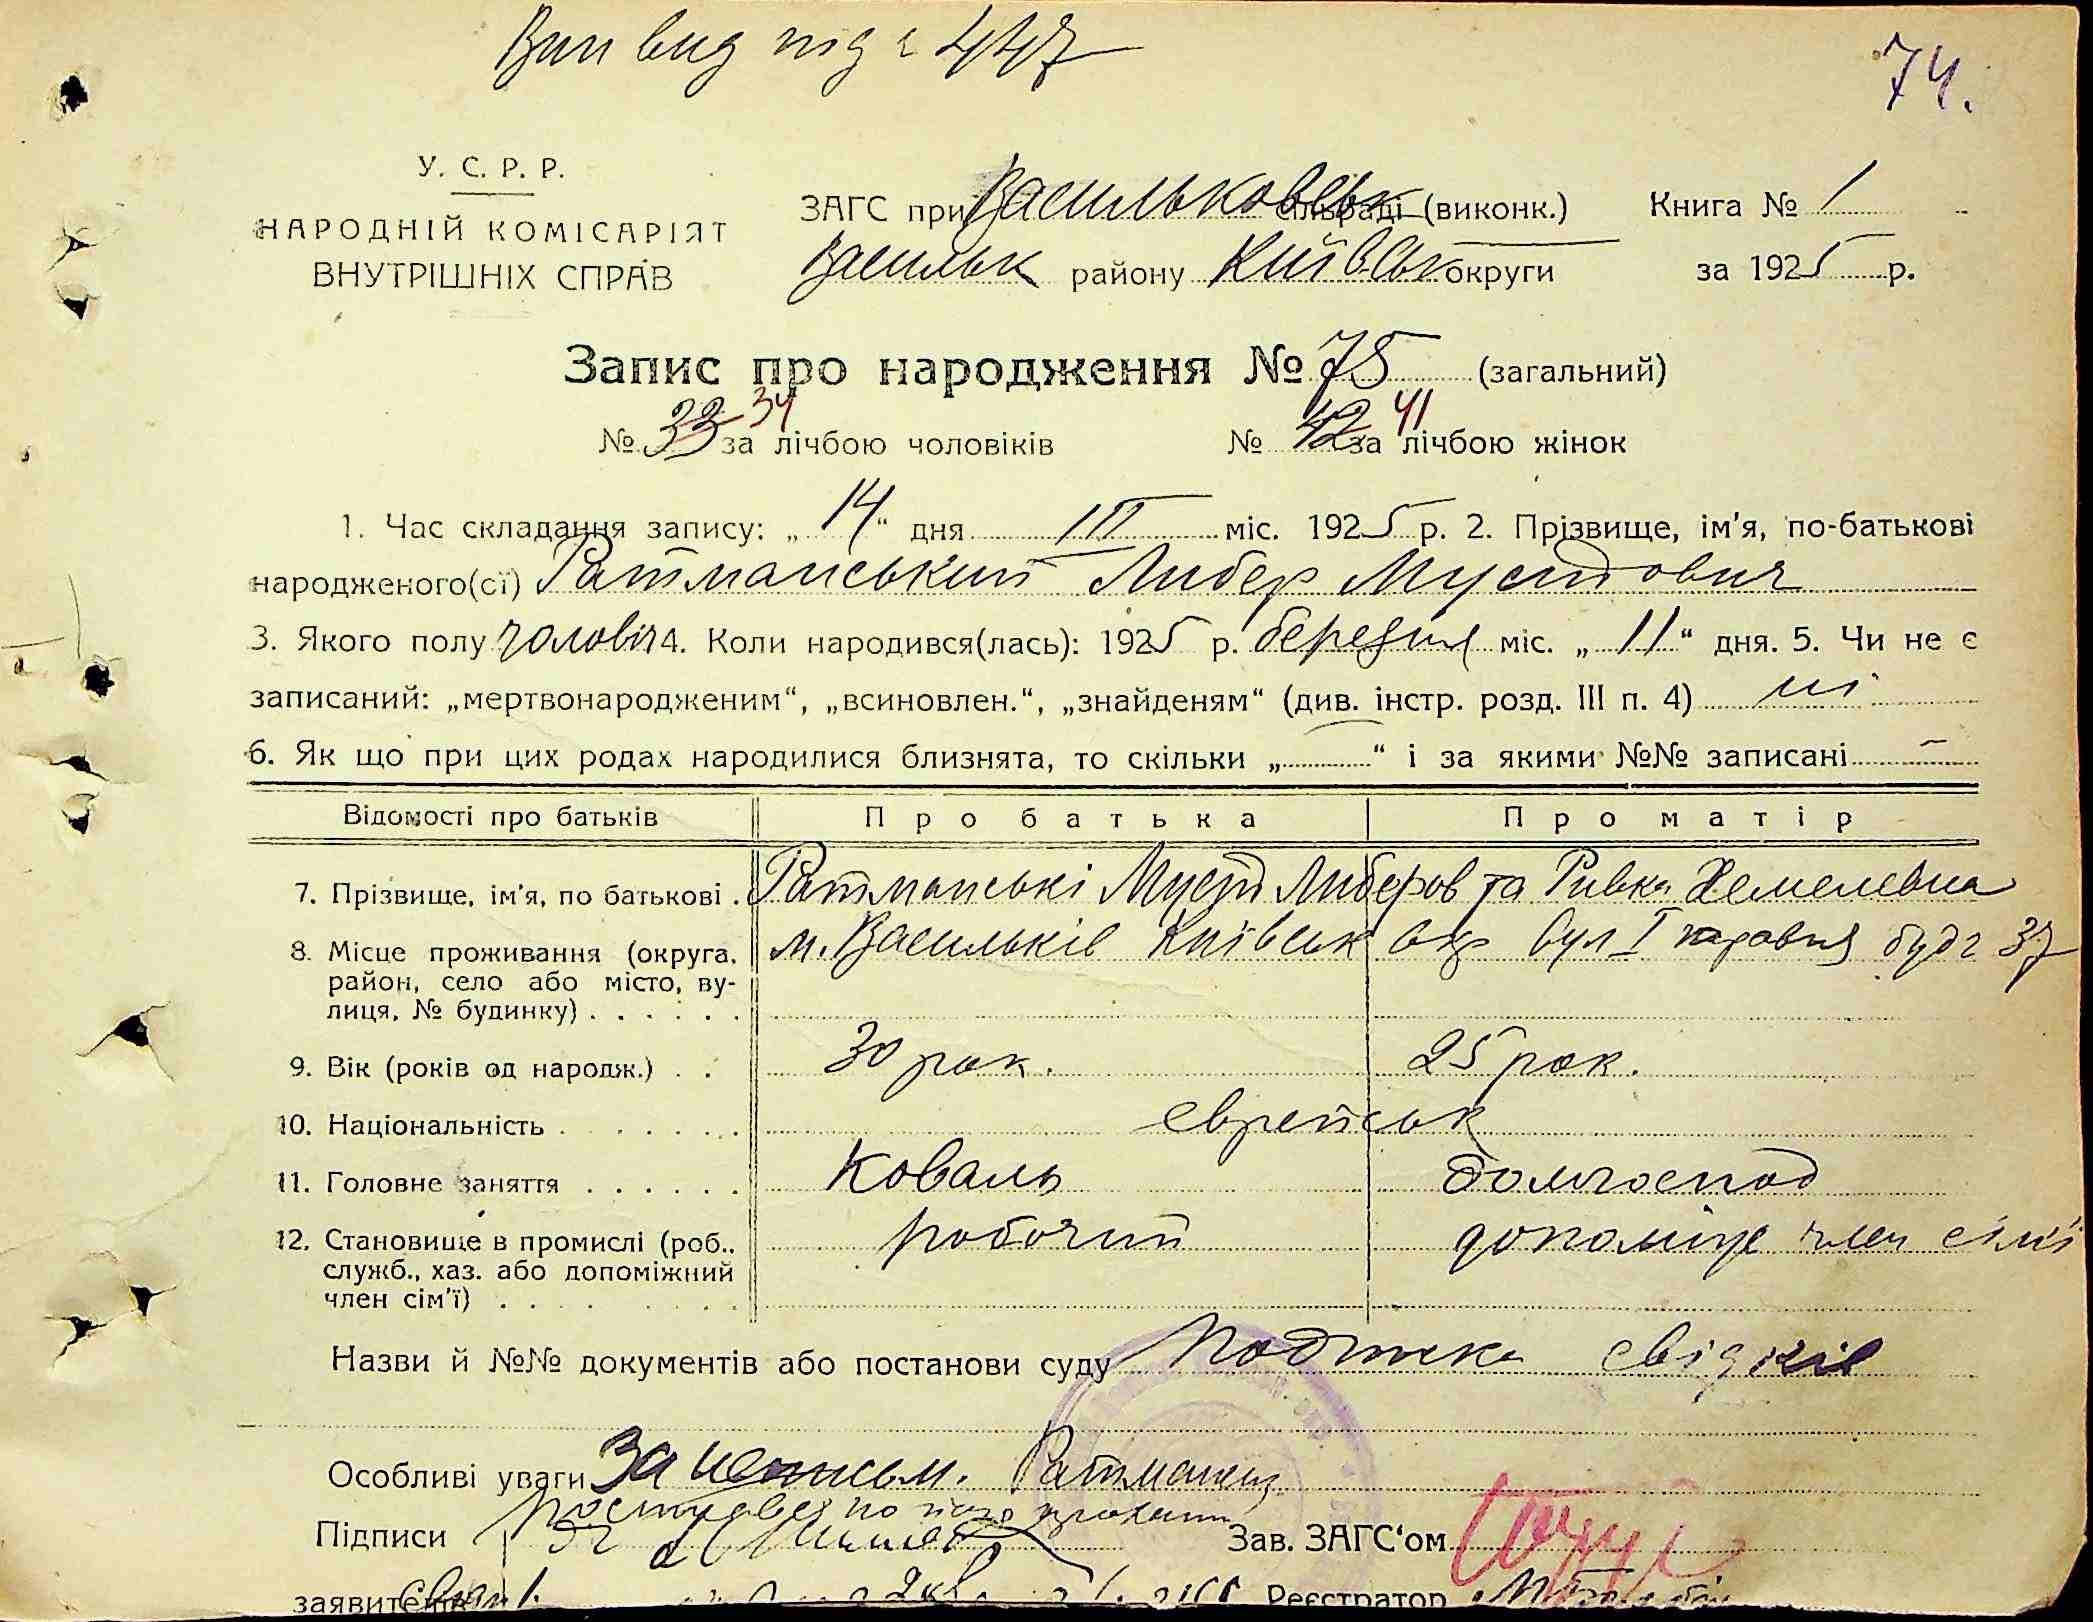 Вип вид під 447
74.
У. С. Р. Р.
НАРОДНІЙ КОМІСАРІЯТ
ВНУТРІШНІХ СПРАВ
ЗАГС при Васильковськ сільраді (виконк.) Книга № 1
Васильк району Київськ округи за 1925 р.
Запис про народження № 75 (загальний)
№ 33 34 за лічбою чоловіків № 42 41 за лічбою жінок
1. Час складання запису: „ 14 “ дня III міс. 1925 р. 2. Прізвище, ім'я, по-батькові
народженого(сї) Ратманський Либер
3. Якого полу чоловіч 4. Коли народився(лась): 1925 р. березня міс. „ 11 “ дня. 5. Чи не є
записаний: „мертвонародженим“, „всиновлен.“, „знайденям“ (див. інстр. розд. III п. 4) ні
6. Як що при цих родах народилися близнята, то скільки „ — “ і за якими №№ записані —
Відомості про батьків Про батька Про матір
7. Прізвище, ім'я, по батькові . Ратманські Либеров та Ривка
8. Місце проживання (округа, м. Васильків Київськ окр вул I буд 37
район, село або місто, ву-
лиця, № будинку) . . . . . .
9. Вік (років од народж.) . . 30 рок. 25 рок.
10. Національність . . . . . . . єврейськ
11. Головне заняття . . . . . . Коваль домгоспод
12. Становище в промислі (роб., робочий допоміж член сім'ї
служб., хаз. або допоміжний
член сім'ї) . . . . . . .
Назви й №№ документів або постанови суду Подписка свідків
Особливі уваги За неписьм.
Підписи Зав. ЗАГС‘ом
заявителів Реєстратор